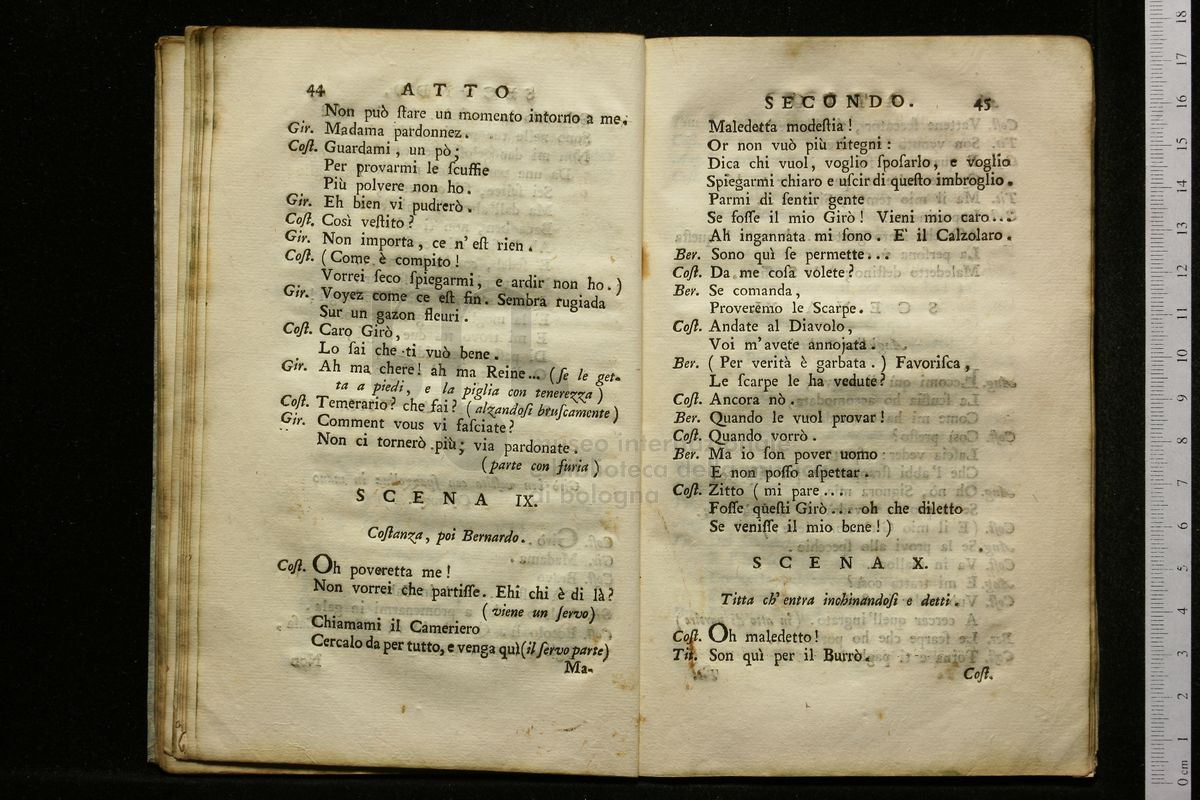 44 ATTO
Non può ſtare un momento intorno a me.
Gir. Madama pardonnez.
Coſt. Guardami, un pò;
Per provarmi le ſcuffie
Più polvere non ho.
Gir. Eh bien vi pudrerò.
Coſt. Così veſtito?
Gir. Non importa, ce n'eſt rien.
Coſt. (Come è compito!
Vorrei ſeco ſpiegarmi, e ardir non ho.)
Gir. Voyez come ce eſt fin. Sembra rugiada
Sur un gazon fleuri.
Coſt. Caro Girò,
Lo ſai che ti vuò bene.
Gir. Ah ma chere! ah ma Reine... (ſe le get-
ta a piedi, e la piglia con tenerezza)
Coſt. Temerario? che fai? (alzandoſi bruſcamente)
Gir. Comment vous vi faſciate?
Non ci tornerò più; via pardonate.
(parte con furia)
SCENA IX.
Coſtanza, poi Bernardo.
Coſt. Oh poveretta me!
Non vorrei che partiſſe. Ehi chi è di là?
(viene un ſervo)
Chiamami il Cameriero
Cercalo da per tutto, e venga quì (il ſervo parte)
Ma-
SECONDO. 45
Maledetta modeſtia!
Or non vuò più ritegni:
Dica chi vuol, voglio ſpoſarlo, e voglio
Spiegarmi chiaro e uſcir di queſto imbroglio.
Parmi di ſentir gente
Se foſſe il mio Girò! Vieni mio caro...
Ah ingannata mi ſono. E' il Calzolaro.
Ber. Sono quì ſe permette...
Coſt. Da me coſa volete?
Ber. Se comanda,
Proveremo le Scarpe.
Coſt. Andate al Diavolo,
Voi m'avete annojata.
Ber. (Per verità è garbata.) Favoriſca,
Le ſcarpe le ha vedute?
Coſt. Ancora nò.
Ber. Quando le vuol provar!
Coſt. Quando vorrò.
Ber. Ma io ſon pover uomo
E non poſſo aſpettar.
Coſt. Zitto (mi pare...
Foſſe queſti Girò... oh che diletto
Se veniſſe il mio bene!)
SCENA X.
Titta ch' entra inchinandoſi e detti.
Coſt. Oh maledetto!
Tit. Son quì per il Burrò.
Coſt.